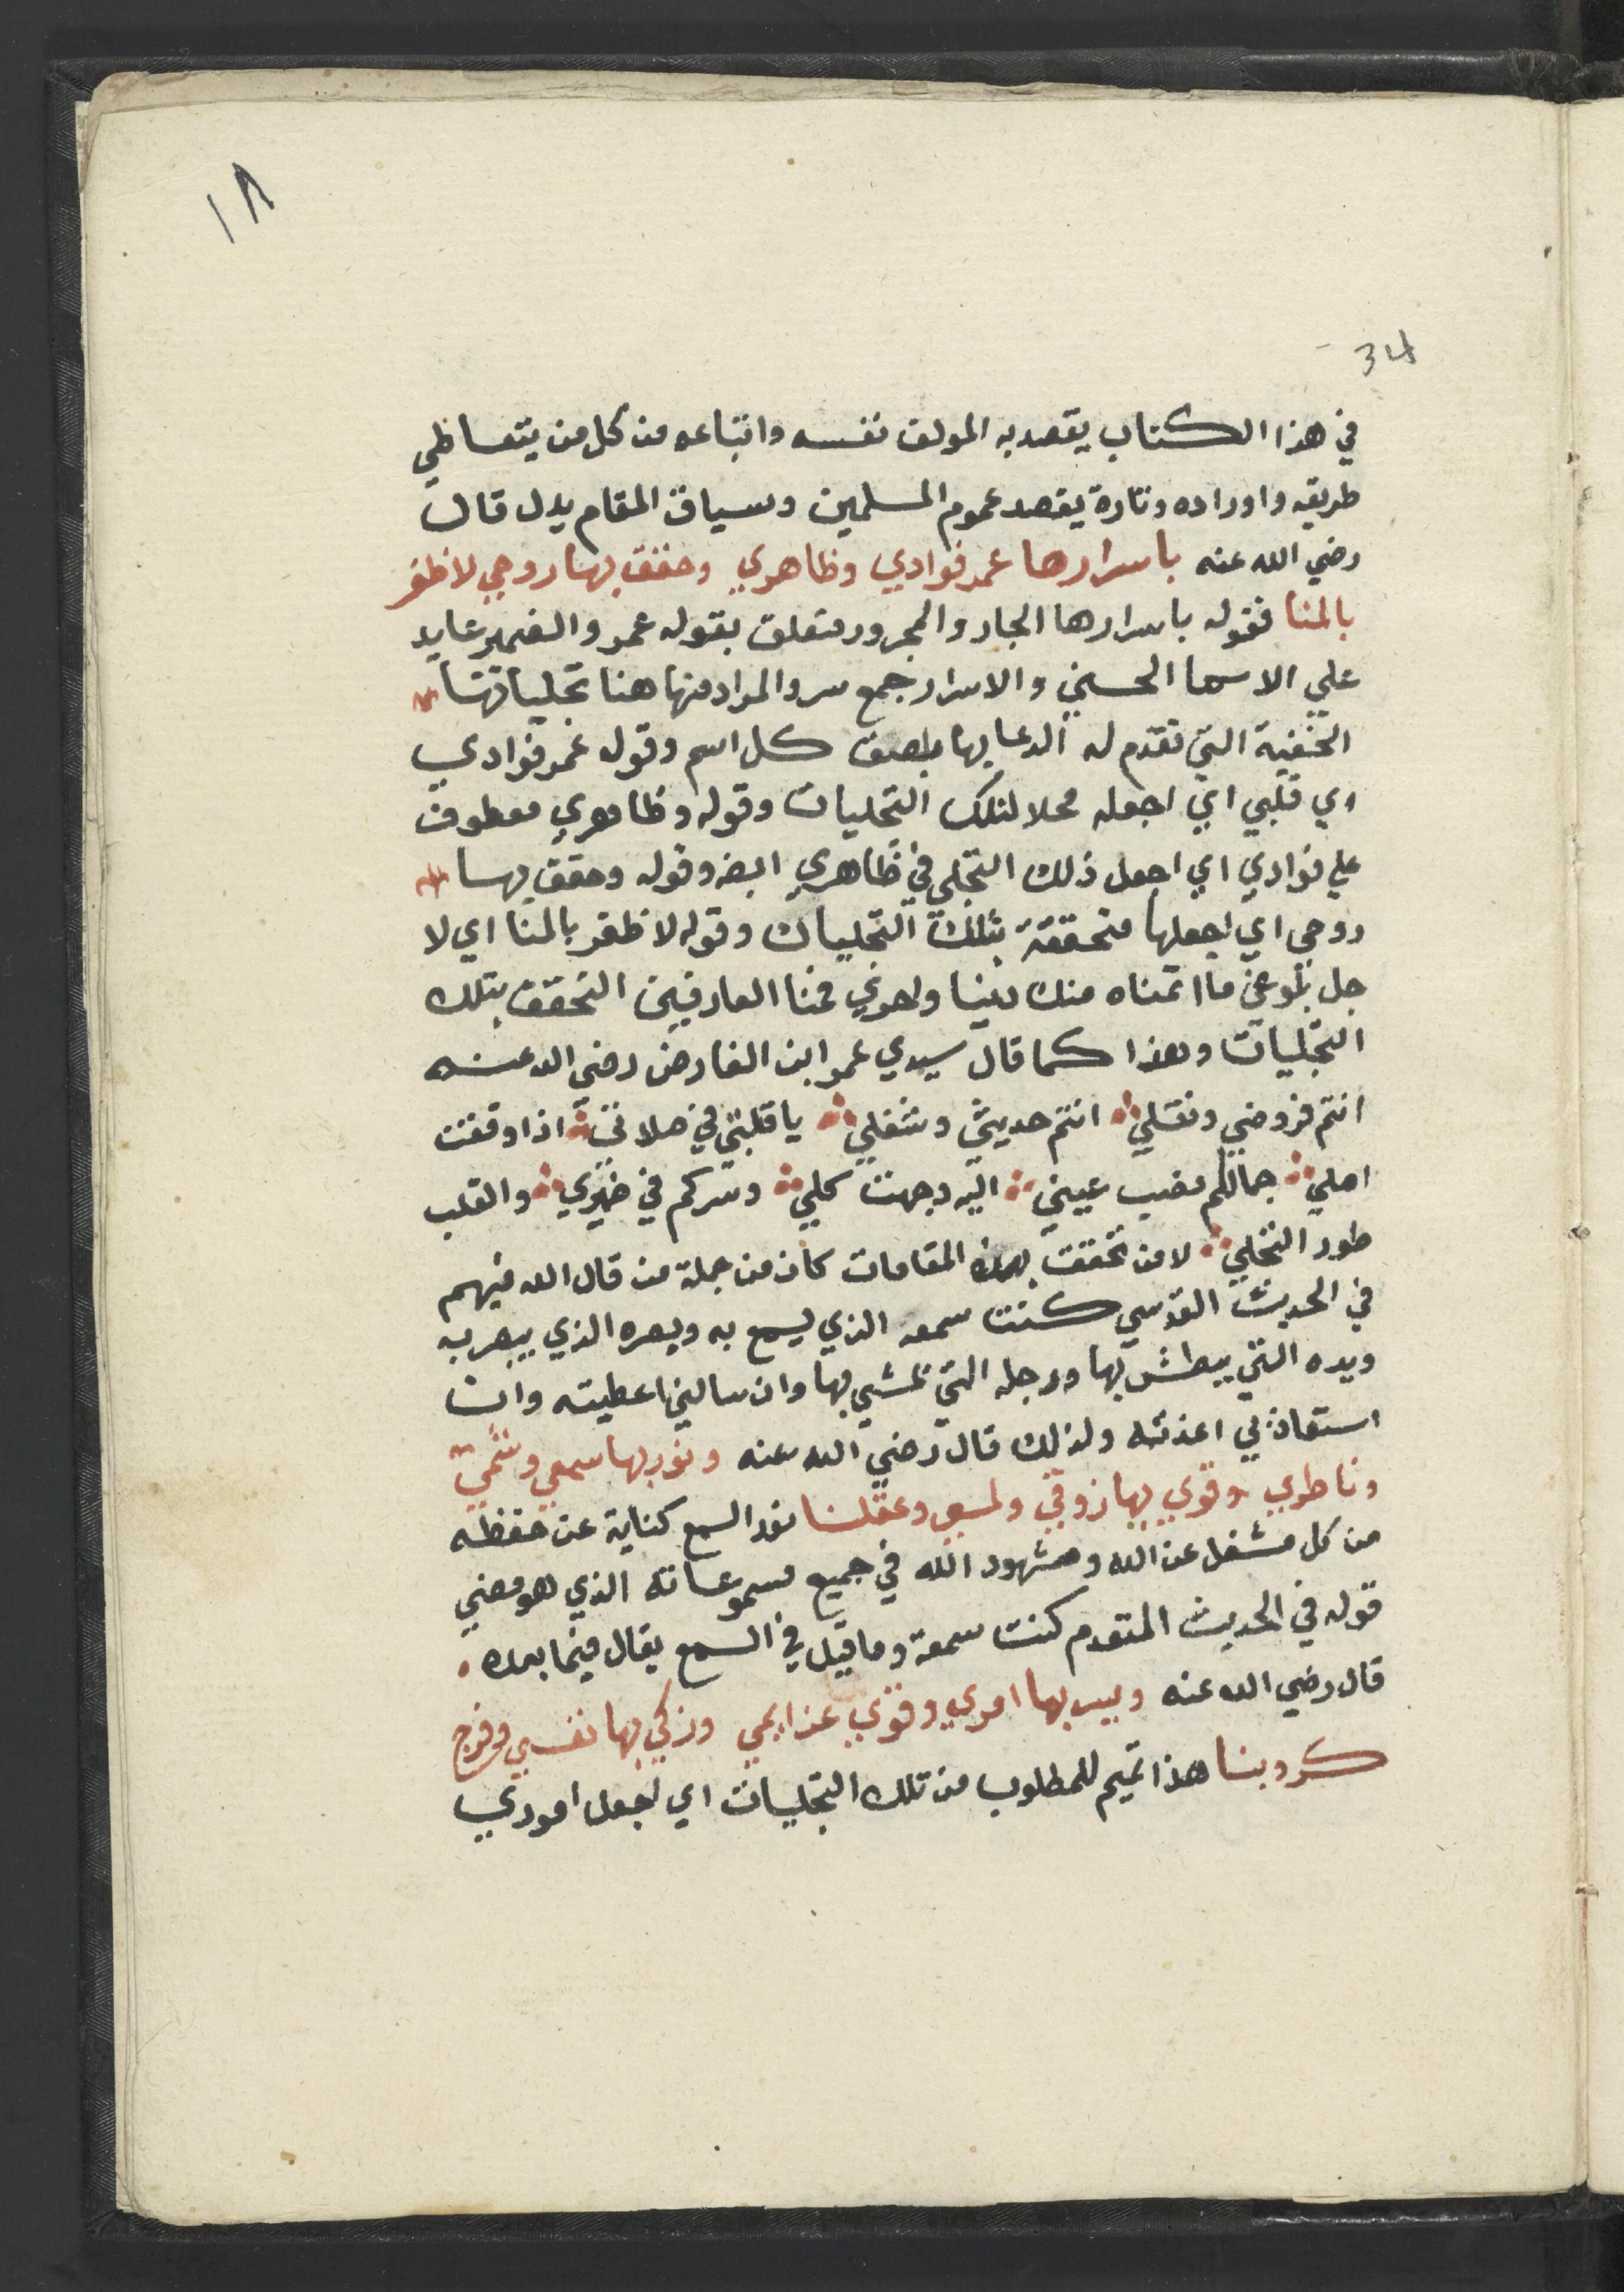 ١٨
34
في هذا الكتاب يقصد به المولف نفسه واتباعه من كل من يتعاطي
طريقه واوراده وتارة يقصد عموم المسلمين وسياق المقام يدل قال
رضي الله عنه باسرارها عمر فوادي وظاهري وحقق بها روحي لاظفر
بالمنا فقوله باسرارها الجار والمجرور متعلق بقوله عمر والضمير عايد
علي الاسما الحسني والاسرار جمع سر والمراد منها هنا تجلياتها
الخفية التي تقدم له الدعا بها كل اسم وقوله عمر فوادي
اي قلبي اي اجعله محلا لتلك التجليات وقوله وظاهري معطوف
علي فوادي اي اجعل ذلك التجلي في ظاهري ايضه وقوله وحقق بها
روحي اي اجعلها متحققة بتلك التجليات وقوله لاظفر بالمنا اي لا
جل بلوغي ما اتمناه منك واخري فمنا العارفين التحقق بتلك
التجليات وهذا كما قال سيدي عمر ابن الفارض رضي الله عنه
انتم فروضي ونفلي انتم حديثي وشغلي يا قبلتي في صلاتي اذا وقفت
اصلي جمالكم نصب عيني اليه وجهت كلي وسركم في ضميري والقلب
طور التجلي لا من تحققت بهذه المقامات كان من جملة من قال الله فيهم
في الحديث القدسي كنت سمعه الذي يسمع به وبصره الذي يبصر به
ويده التي يبطش بها ورجله التي تمشي بها وان سالني اعطيته وان
استعاذ بي اعذته ولذلك قال رضي الله عنه ونور بها سمعي وشمي
وناطري وقوي بها زوقي ولمسي وعقلنا نور السمع كناية عن حفظه
من كل مشغل عن الله وشهود الله في جميع مسموعاته الذي هو معني
قوله في الحديث المتقدم كنت سمعة وما قيل في السمع يقال فيما بعده
قال رضي الله عنه ويسر بها امري وقوي عزايمي وزكي بها نفسي وفرج
كروبنا هذا تميم للمطلوب من تلك التجليات اي اجعل اموري